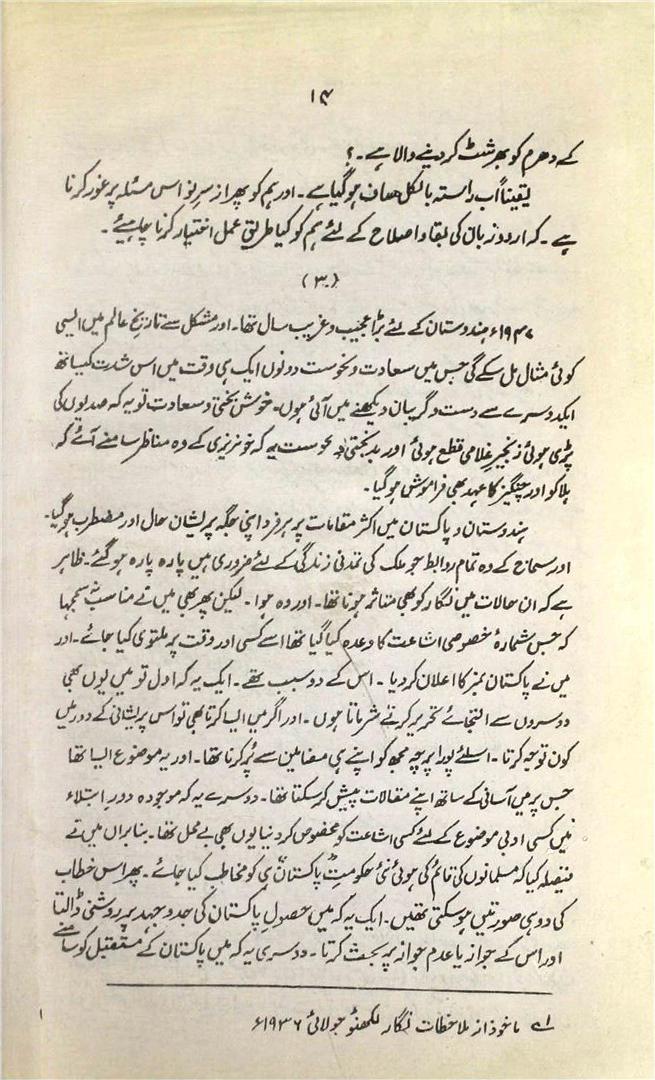 ۱۴
کے دھرم کو بھرشٹ کر دینے والا ہے۔ ؟
یقیناً اب راستہ بالکل صاف ہو گیا ہے۔ اور ہم کو پھر از سرِ نو اس مسئلہ پر غور کرنا
ہے۔ کہ اردو زبان کی بقا و اصلاح کے لئے ہم کو کیا طریق عمل اختیار کرنا چاہیئے۔
(۳)
۱۹۴۷ء ہندوستان کے لئے بڑا عجیب و غریب سال تھا۔ اور مشکل سے تاریخ عالم میں ایسی
کوئی مثال مل سکے گی جس میں سعادت و نحوست دونوں ایک ہی وقت میں اس شدت کیساتھ
ایکدوسرے سے دست و گریبان دیکھنے میں آئی ہوں۔ خوش بختی و سعادت تو یہ کہ صدیوں کی
پڑی ہوئی زنجیرِ غلامی قطع ہوئی اور بد بختی و نحوست یہ کہ خونریزی کے وہ مناظر سامنے آئے کہ
ہلاکو اور چنگیز کا عہد بھی فراموش ہو گیا۔
ہندوستان و پاکستان میں اکثر مقامات پر ہر فرد اپنی جگہ پریشان حال اور مضطرب ہو گیا۔
اور سماج کے وہ تمام روابط جو ملک کی تمدنی زندگی کے لئے ضروری ہیں پارہ پارہ ہو گئے۔ ظاہر
ہے کہ ان حالات میں نگار کو بھی متاثر ہونا تھا۔ اور وہ ہوا۔ لیکن پھر بھی میں نے مناسب سمجھا
کہ جس شمارۂ خصوصی اشاعت کا وعدہ کیا گیا تھا اسے کسی اور وقت پر ملتوی کیا جائے۔ اور
میں نے پاکستان نمبر کا اعلان کر دیا۔ اس کے دو سبب تھے۔ ایک یہ کہ اول تو میں یوں بھی
دوسروں سے التجائے تحریر کرتے شرماتا ہوں۔ اور اگر میں ایسا کرتا بھی تو اس پریشانی کے دور میں
کون توجہ کرتا۔ اسلئے پورا پرچہ مجھ کو اپنے ہی مضامین سے پُر کرنا تھا۔ اور یہ موضوع ایسا تھا
جس پر میں آسانی کے ساتھ اپنے مقالات پیش کر سکتا تھا۔ دوسرے یہ کہ موجودہ دورِ ابتلاء
میں کسی ادبی موضوع کے لئے کسی اشاعت کو مخصوص کر دنیا یوں بھی بے محل تھا۔ بنابراں میں نے
فیصلہ کیا کہ مسلمانوں کی قائم کی ہوئی نئی حکومتِ پاکستان ہی کو مخاطب کیا جائے۔ پھر اس خطاب
کی دو ہی صورتیں ہو سکتی تھیں۔ ایک یہ کہ میں حصولِ پاکستان کی جدوجہد پر روشنی ڈالتا
اور اس کے جواز یا عدم جواز پر بحث کرتا۔ دوسری یہ کہ میں پاکستان کے مستقبل کو سامنے
ماخوذ از ملاحظات نگار لکھنؤ جولائی ۱۹۳۶ء